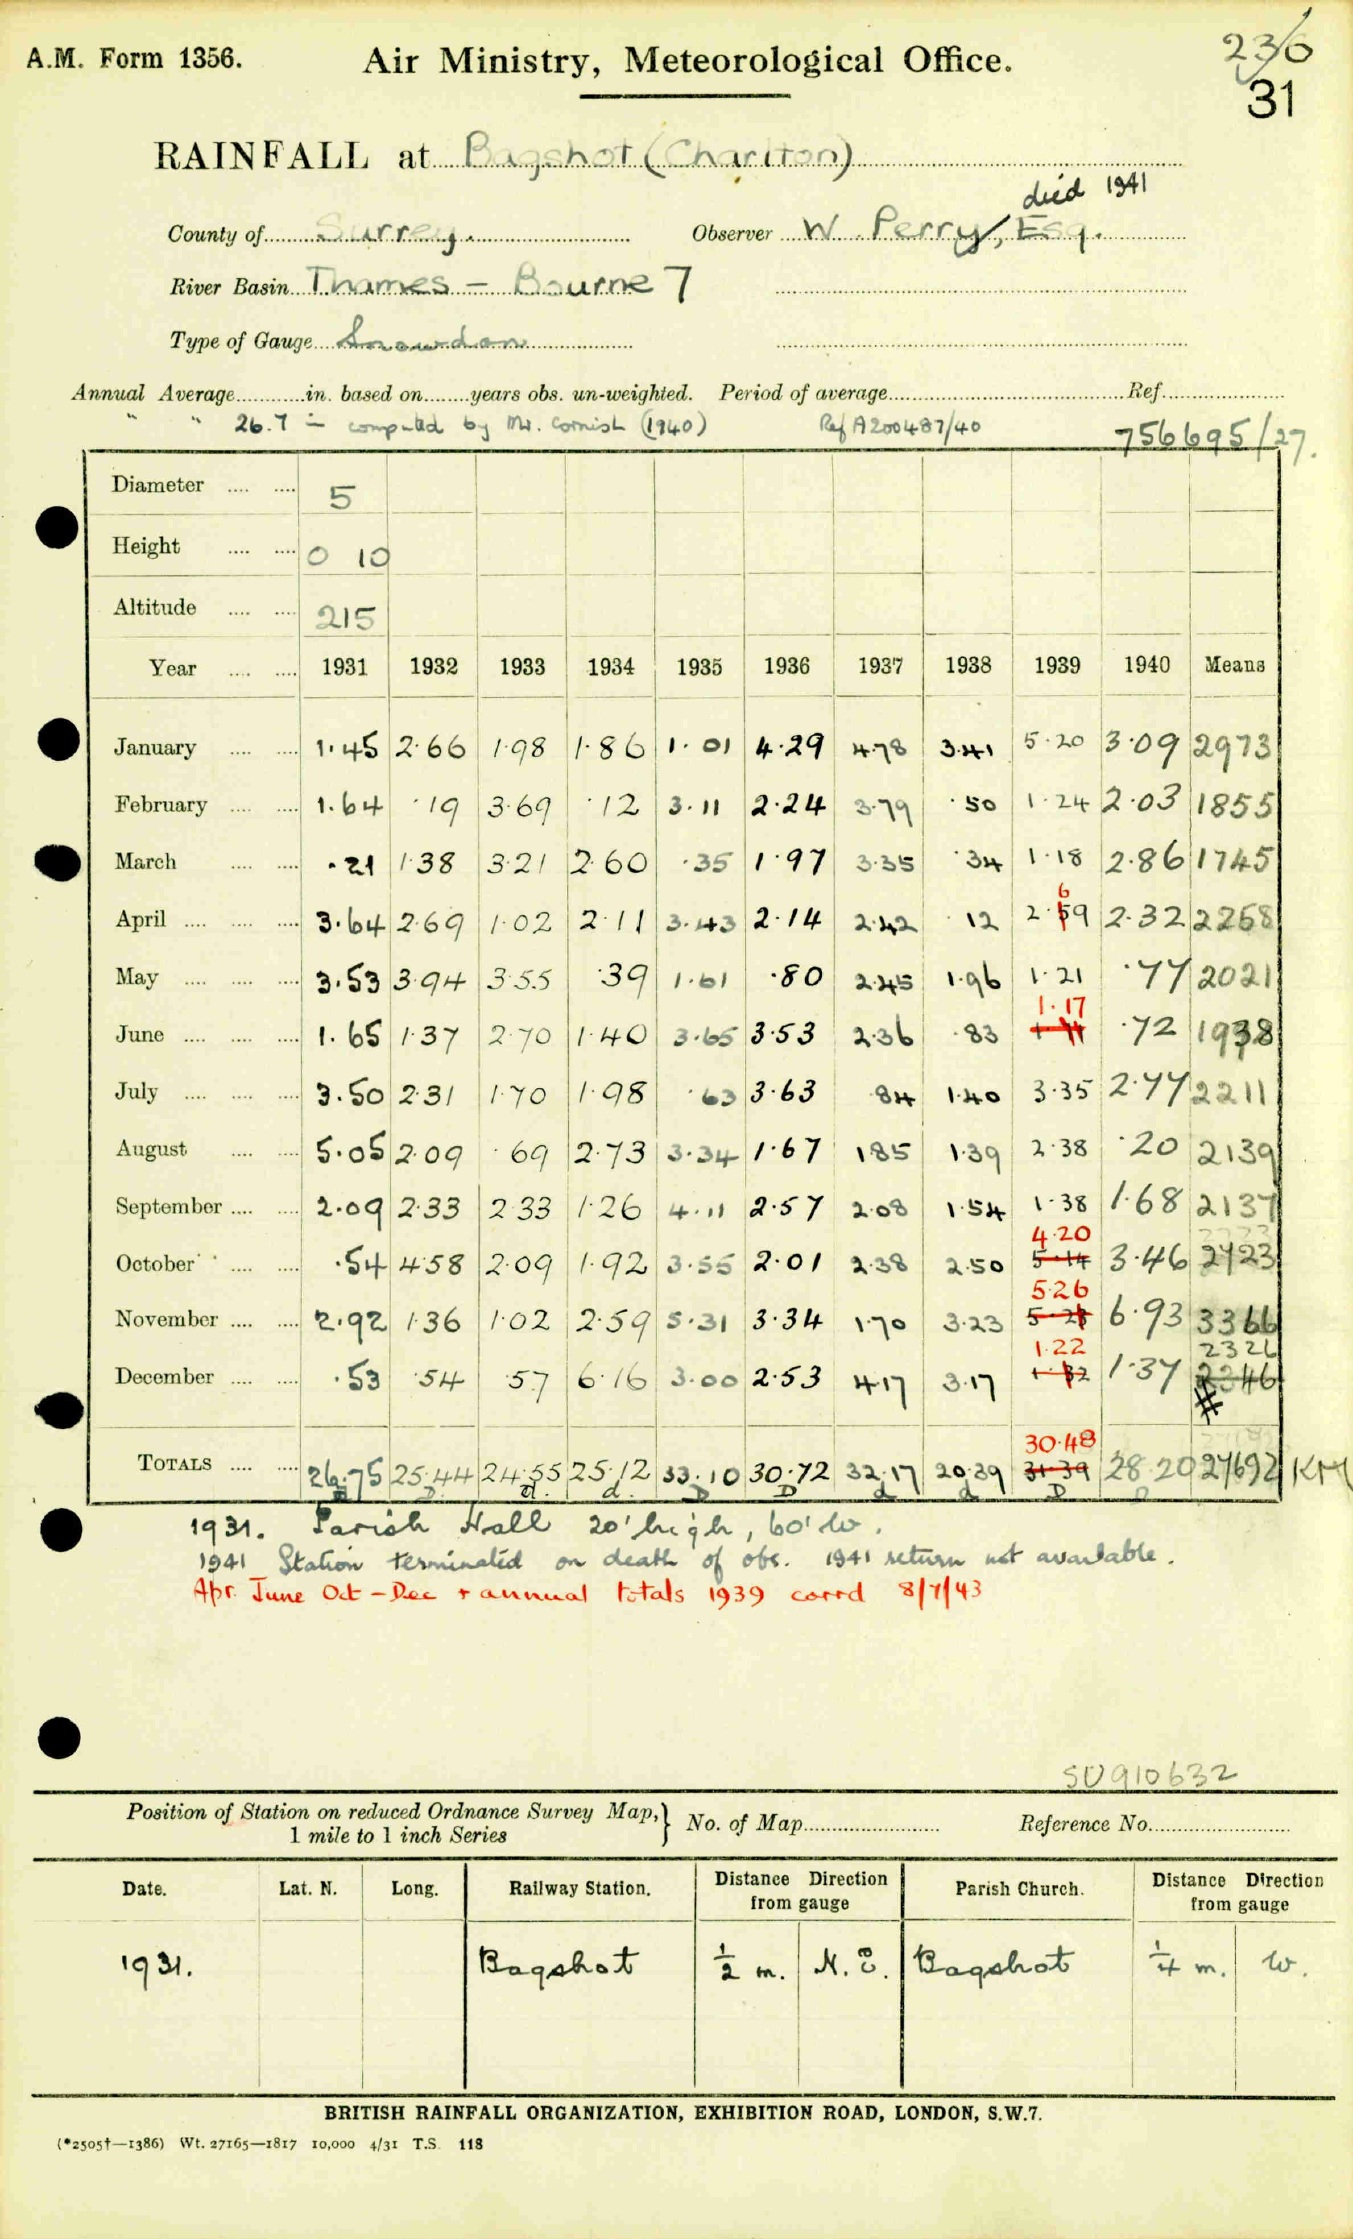 236
A.M. Form 1356. Air Ministry, Meteorological Office.
31
RAINFALL at Bagshot (Charlton)
died 1941
County of Surrey. Observer W. Perry, Esq.
River Basin Thames — Bourne 7
Type of Gauge Snowdon
Annual Average in. based on years obs. un-weighted. Period of average Ref.
" " 26.7 in computed by Mr. Cornish (1940) Ref A200487/40 756695/27.
Diameter 5
Height 0 10
Altitude 215
Year 1931 1932 1933 1934 1935 1936 1937 1938 1939 1940 Means
January 1.45 2.66 1.98 1.86 1.01 4.29 4.78 3.41 5.20 3.09 2973
February 1.64 .19 3.69 .12 3.11 2.24 3.79 .50 1.24 2.03 1855
March .21 1.38 3.21 2.60 .35 1.97 3.35 .34 1.18 2.86 1745
6
April 3.64 2.69 1.02 2.11 3.43 2.14 2.42 .12 2.59 2.32 2258
May 3.53 3.94 3.55 .39 1.61 .80 2.45 1.96 1.21 .77 2021
1.17
June 1.65 1.37 2.70 1.40 3.65 3.53 2.36 .83 1.11 .72 1938
July 3.50 2.31 1.70 1.98 .63 3.63 .84 1.40 3.35 2.77 2211
August 5.05 2.09 .69 2.73 3.34 1.67 1.85 1.39 2.38 .20 2139
September 2.09 2.33 2.33 1.26 4.11 2.57 2.08 1.54 1.38 1.68 2137
4.20
October .54 4.58 2.09 1.92 3.55 2.01 2.38 2.50 5.14 3.46 2723
5.26
November 2.92 1.36 1.02 2.59 5.31 3.34 1.70 3.23 5.28 6.93 3366
1.22 2326
December .53 .54 .57 6.16 3.00 2.53 4.17 3.17 1.32 1.37 2346
30.48
TOTALS 26.75 25.44 24.55 25.12 33.10 30.72 32.17 20.39 31.39 28.20 27692 KM
D d. d. D D d d D D
1931. Parish Hall 20' high, 60' W.
1941 Station terminated on death of obs. 1941 return not available.
Apr. June Oct – Dec + annual totals 1939 corrd 8/7/43
SU910632
Position of Station on reduced Ordnance Survey Map, 1 mile to 1 inch Series } No. of Map Reference No.
Date. Lat. N. Long. Railway Station. Distance Direction from gauge Parish Church. Distance Direction from gauge
1931. Bagshot 1/2 m. N.E. Bagshot 1/4 m. W.
BRITISH RAINFALL ORGANIZATION, EXHIBITION ROAD, LONDON, S.W.7.
(*2505†—1386) Wt. 27165—1817 10,000 4/31 T.S. 118